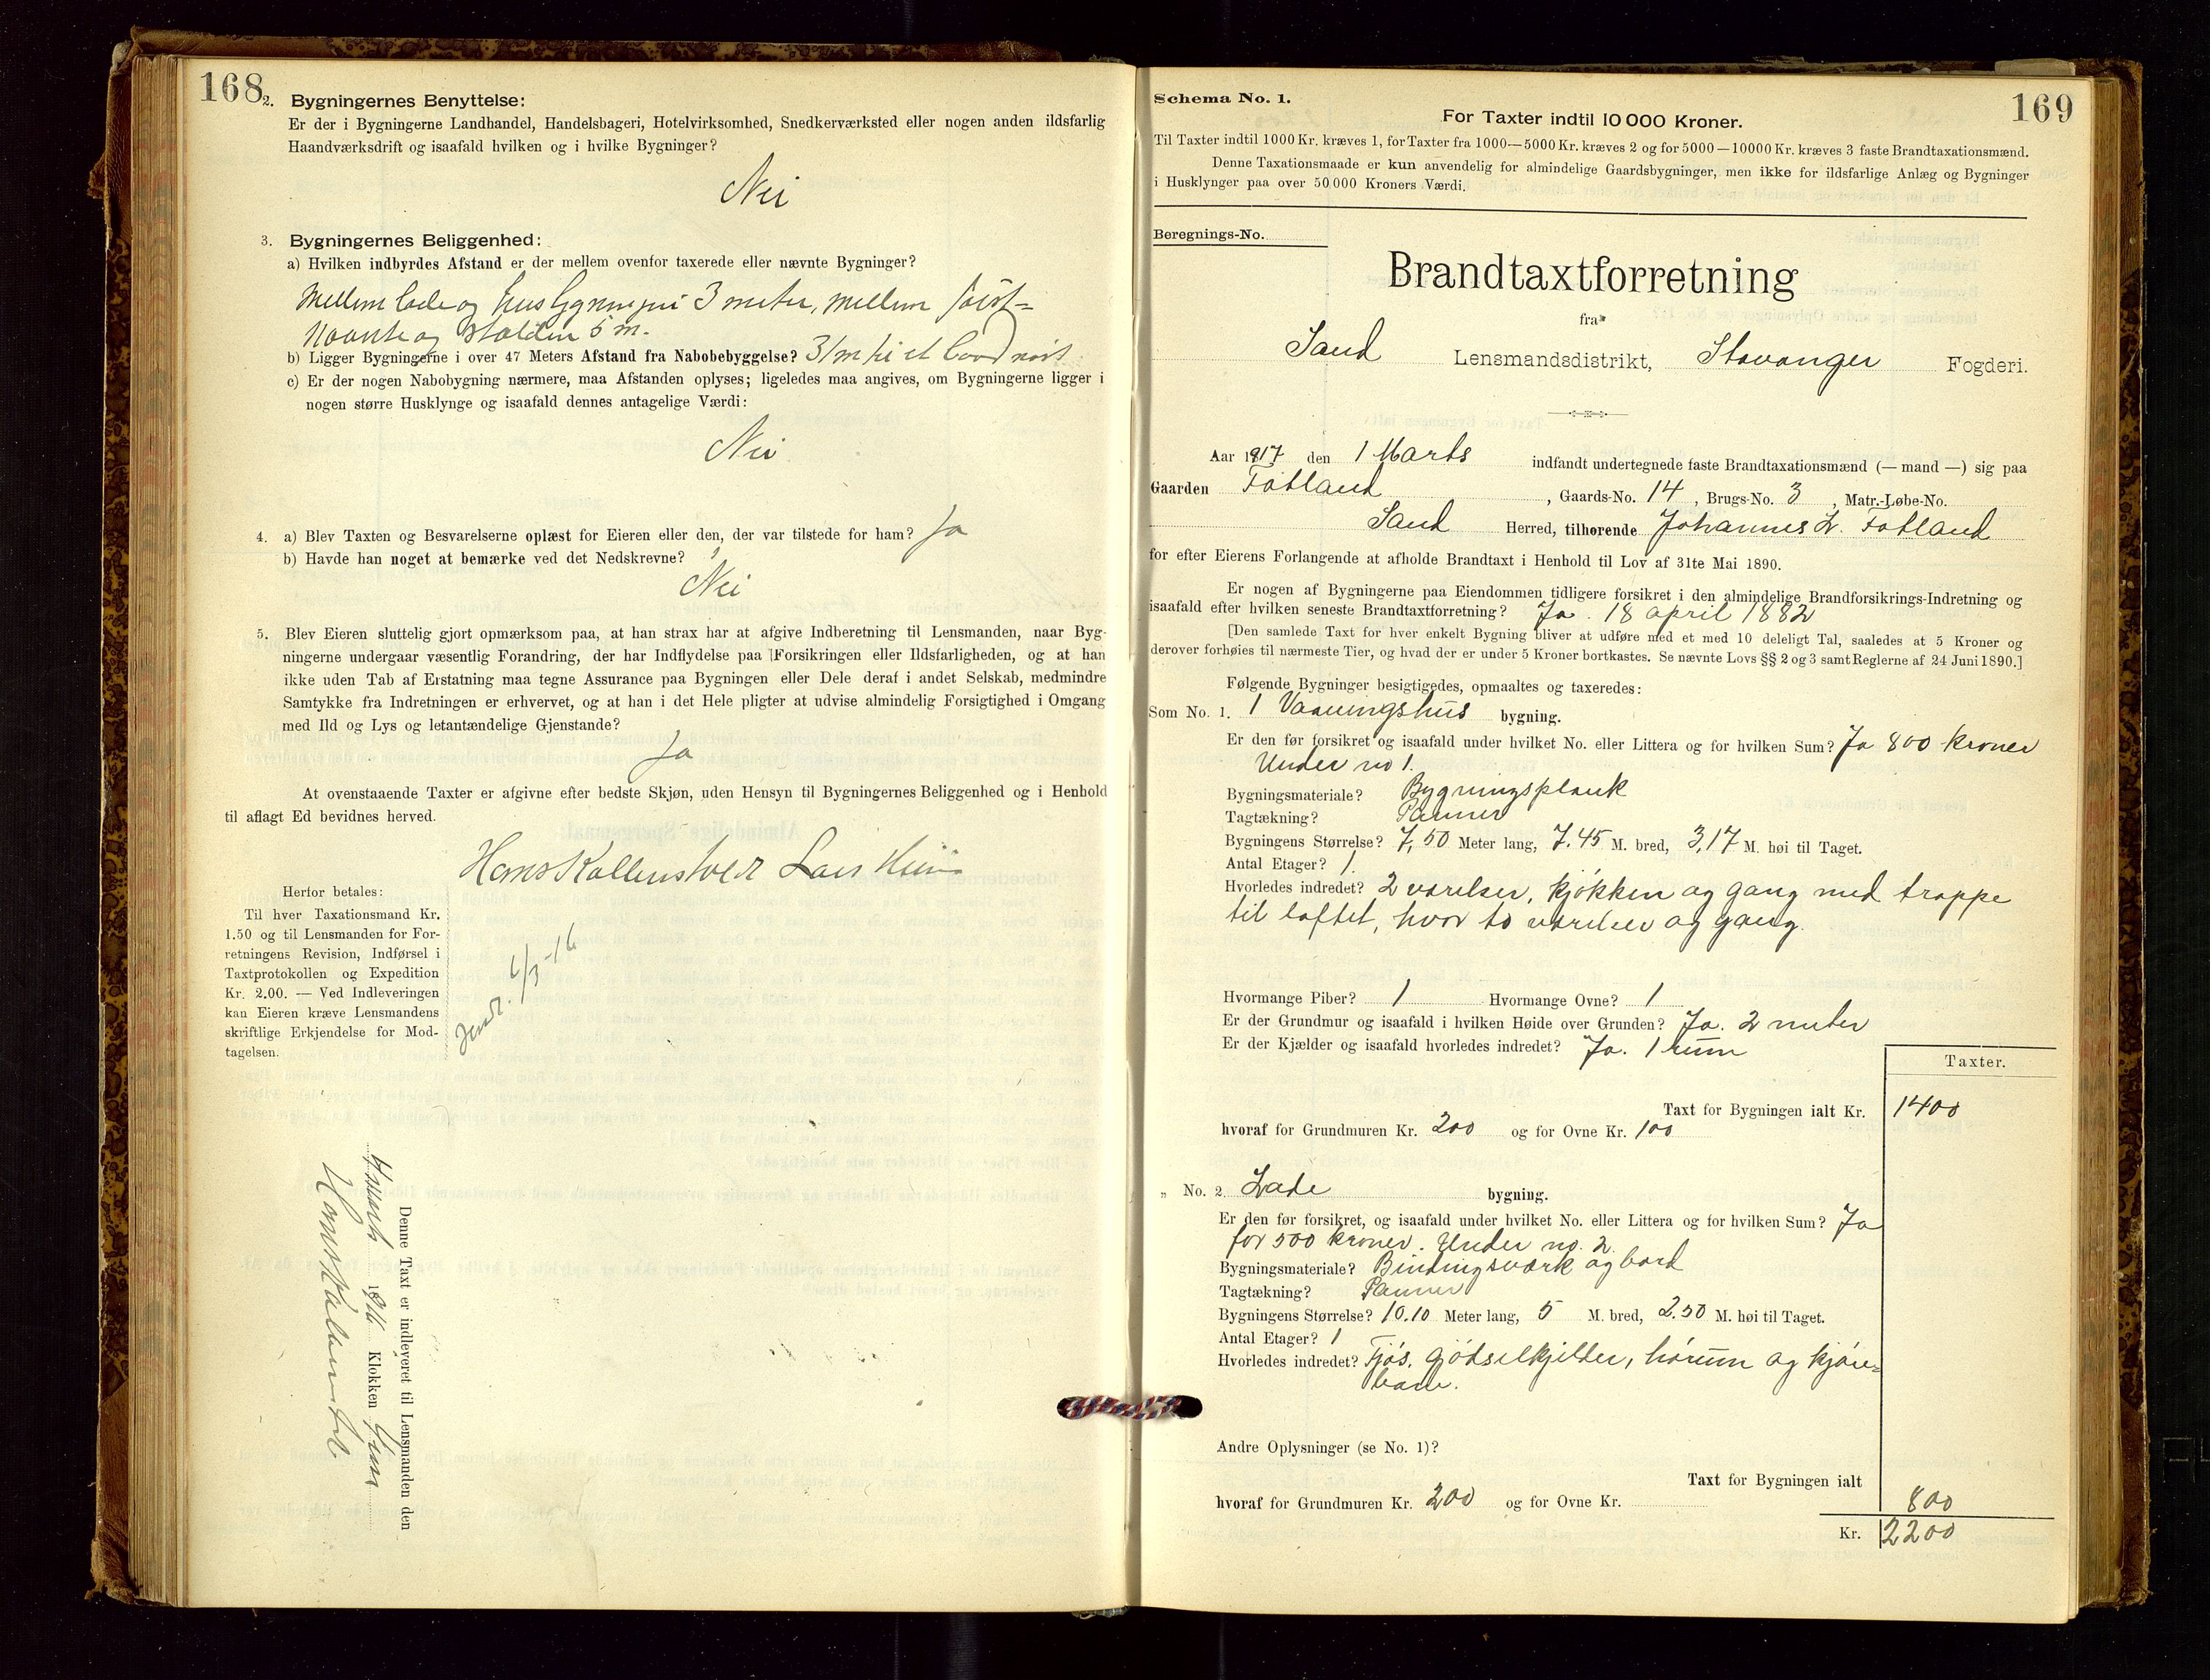 168
2. Bygningernes Benyttelse:
Er der i Bygningerne Landhandel, Handelsbageri, Hotelvirksomhed, Snedkerværksted eller nogen anden ildsfarlig
Haandværksdrift og isaafald hvilken og i hvilke Bygninger?
Nei
3. Bygningernes Beliggenhed:
a) Hvilken indbyrdes Afstand er der mellem ovenfor taxerede eller nævnte Bygninger?
Mellem lade og 3 meter, mellem først-
nævnte og stalden 5 m.
b) Ligger Bygningerne i over 47 Meters Afstand fra Nabobebyggelse?
c) Er der nogen Nabobygning nærmere, maa Afstanden oplyses; ligeledes maa angives, om Bygningerne ligger i
nogen større Husklynge og isaafald dennes antagelige Værdi:
Nei
4. a) Blev Taxten og Besvarelserne oplæst for Eieren eller den, der var tilstede for ham? Ja
b) Havde han noget at bemærke ved det Nedskrevne?
Nei
5. Blev Eieren sluttelig gjort opmærksom paa, at han strax har at afgive Indberetning til Lensmanden, naar Byg-
ningerne undergaar væsentlig Forandring, der har Indflydelse paa Forsikringen eller Ildsfarligheden, og at han
ikke uden Tab af Erstatning maa tegne Assurance paa Bygningen eller Dele deraf i andet Selskab, medmindre
Samtykke fra Indretningen er erhvervet, og at han i det Hele pligter at udvise almindelig Forsigtighed i Omgang
med Ild og Lys og letantændelige Gjenstande?
Ja
At ovenstaaende Taxter er afgivne efter bedste Skjøn, uden Hensyn til Bygningernes Beliggenhed og i Henhold
til aflagt Ed bevidnes herved.
Hans Kollenstvedt Lars
Herfor betales:
Til hver Taxationsmand Kr.
1.50 og til Lensmanden for For-
retningens Revision, Indførsel i
Taxtprotokollen og Expedition
Kr. 2.00. — Ved Indleveringen
kan Eieren kræve Lensmandens
skriftlige Erkjendelse for Mod-
tagelsen.
Denne Taxt er indleveret til Lensmanden den
Klokken
169
Schema No. 1.
For Taxter indtil 10 000 Kroner.
Til Taxter indtil 1000 Kr. kræves 1, for Taxter fra 1000—5000 Kr. kræves 2 og for 5000—10000 Kr. kræves 3 faste Brandtaxationsmænd.
Denne Taxationsmaade er kun anvendelig for almindelige Gaardsbygninger, men ikke for ildsfarlige Anlæg og Bygninger
i Husklynger paa over 50 000 Kroners Værdi.
Beregnings-No.
Brandtaxtforretning
fra
Sand Lensmandsdistrikt, Stavanger Fogderi.
Aar 1917 den 1 Marts indfandt undertegnede faste Brandtaxationsmænd (— mand —) sig paa
Gaarden Fotland, Gaards-No. 14, Brugs-No. 3, Matr.-Løbe-No.
Sand Herred, tilhørende Johannes L. Fotland
for efter Eierens Forlangende at afholde Brandtaxt i Henhold til Lov af 31te Mai 1890.
Er nogen af Bygningerne paa Eiendommen tidligere forsikret i den almindelige Brandforsikrings-Indretning og
isaafald efter hvilken seneste Brandtaxtforretning? Ja. 18 april 1882
[Den samlede Taxt for hver enkelt Bygning bliver at udføre med et med 10 deleligt Tal, saaledes at 5 Kroner og
derover forhøies til nærmeste Tier, og hvad der er under 5 Kroner bortkastes. Se nævnte Lovs §§ 2 og 3 samt Reglerne af 24 Juni 1890.]
Følgende Bygninger besigtigedes, opmaaltes og taxeredes:
Som No. 1. 1 Vaaningshus bygning.
Er den før forsikret og isaafald under hvilket No. eller Littera og for hvilken Sum? Ja 800 kroner
Under no 1.
Bygningsmateriale? Bygningsplank
Tagtækning? Panner
Bygningens Størrelse? 7,50 Meter lang, 7.45 M. bred, 3,17 M. høi til Taget.
Antal Etager? 1.
Hvorledes indredet? 2 værelser, kjøkken og gang med trappe
til loftet, hvor to værelser og gang.
Hvormange Piber? 1 Hvormange Ovne? 1
Er der Grundmur og isaafald i hvilken Høide over Grunden? Ja. 2 meter
Er der Kjælder og isaafald hvorledes indredet? Ja. 1 rum
Taxter.
Taxt for Bygningen ialt Kr. 1400
hvoraf for Grundmuren Kr. 200 og for Ovne Kr. 100
„ No. 2. Lade bygning.
Er den før forsikret, og isaafald under hvilket No. eller Littera og for hvilken Sum? Ja
for 500 kroner. Under no. 2.
Bygningsmateriale? Bindingsværk og bord
Tagtækning? Panner
Bygningens Størrelse? 10.10 Meter lang, 5 M. bred, 2.50 M. høi til Taget.
Antal Etager? 1
Hvorledes indredet? Fjøs, gjødselkjelder, hørum og kjøre-
bane.
Andre Oplysninger (se No. 1)?
Taxt for Bygningen ialt
hvoraf for Grundmuren Kr. 200 og for Ovne Kr. 800
Kr. 2200